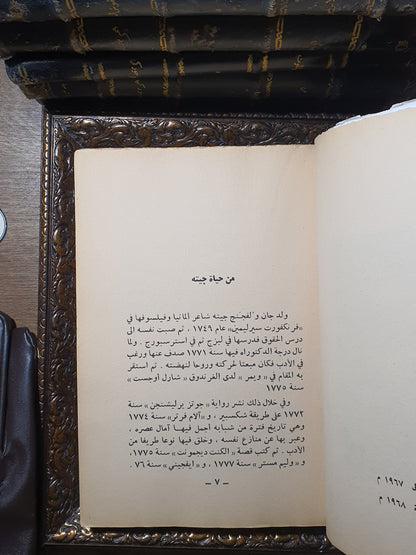 من حياة جيته
ولد جان ولفجنج جيته شاعر ألمانيا وفيلسوفها في
« فرنكفورت سيرليمين » عام ١٧٤٩ ، ثم صبت نفسه الى
درس الحقوق فدرسها في ليزج ثم في استرسبورج . ولما
نال درجة الدكتوراه فيها سنة ١٧٧١ صدف عنها ورغب
في الأدب فكان مبعثا لحركته وروحا لنهضته . ثم استقر
به المقام في « ويمر » لدى الغرندوق « شارل اوجست »
سنة ١٧٧٥
وفي خلال ذلك نشر رواية « جوتز برليشنجن » سنة
١٧٧٢ على طريقة شكسبير ، و « آلام فرتر » سنة ١٧٧٤
وهي تاريخ فترة من شبابه اجمل فيها آمال عصره ،
وعبر بها عن منازع نفسه ، وخلق فيها نوعا طريفا من
الأدب . ثم كتب قصة « الكنت ديجمونت » سنة ١٧٧٥ ،
و « وليم مستر » سنة ١٧٧٧ ، و « ايفجيني » سنة ٧٦ .
– ٧ –
١٩٦٧ م
١٩٦٨ م